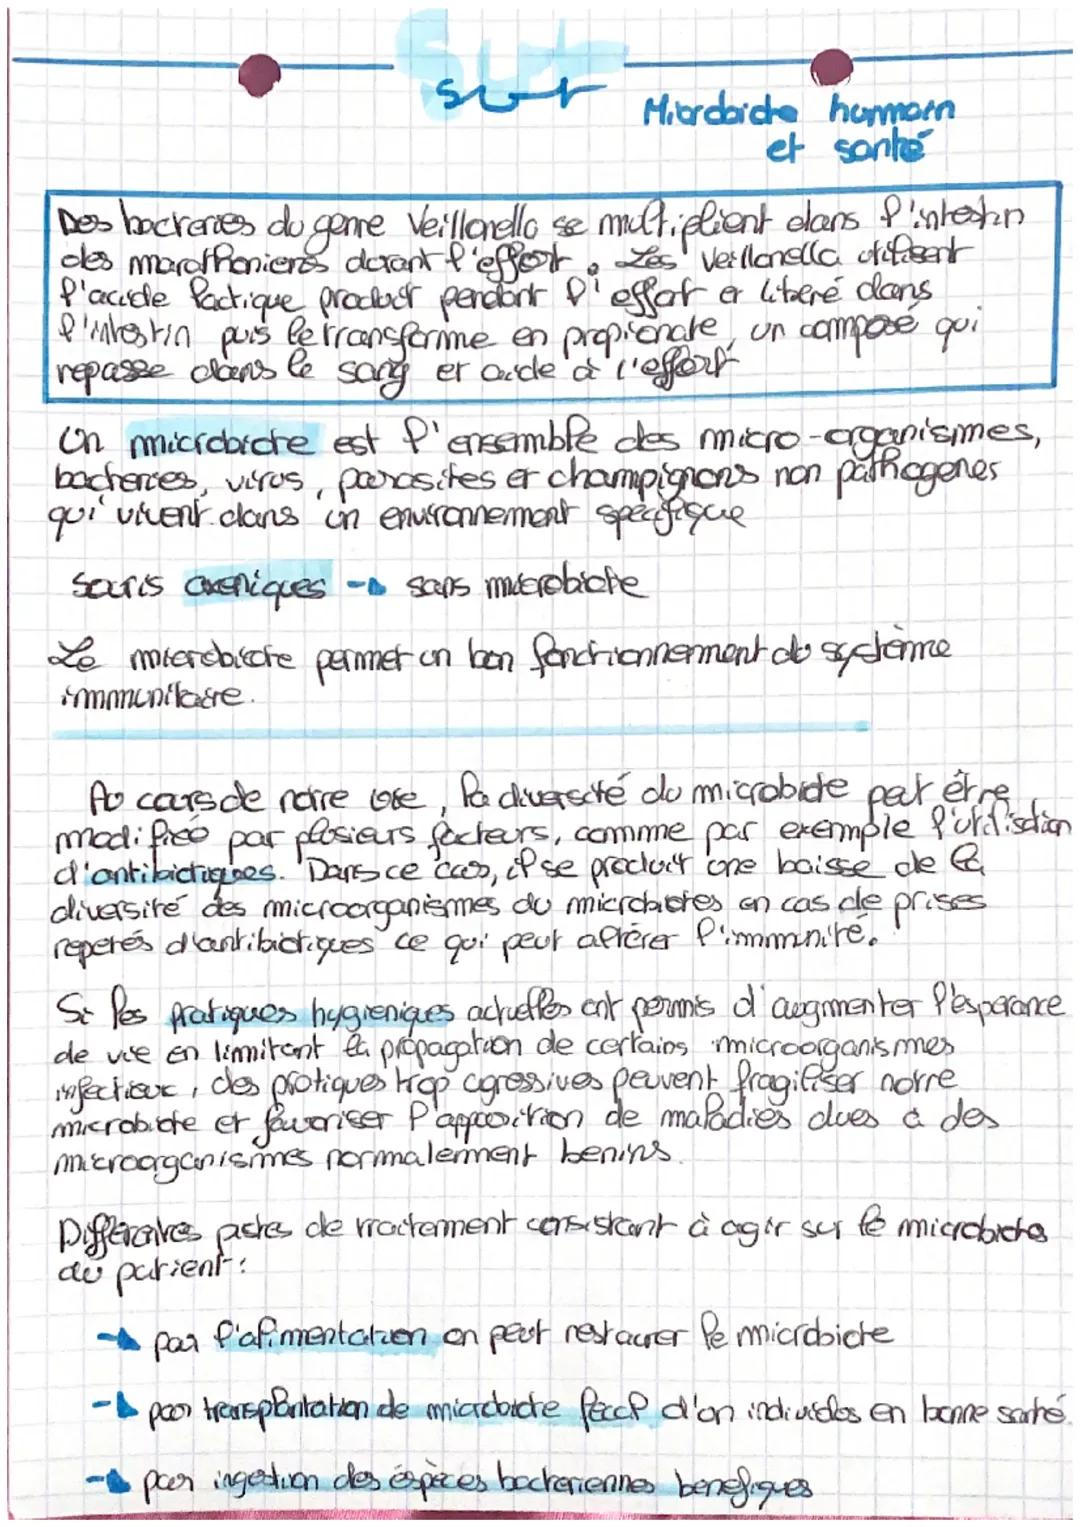 SVT
svt
Microbiote humain
et santé
Des bacteries du genre Veillonella se multiplient dans l'intestin
des marathoniens durant l'effort. Les Veillonella utilisent
l'acide lactique product pendant l'effort et libéré dans
l'intestin puis le transforme en propionate, un composé qui
repasse dans le sang et aide à l'effort
Un microbiote est l'ensemble des micro-organismes,
bacteries, virus, parasites et champignons non pathogenes
qui vivent dans un environnement specifique
Souris axeniques → sans microbiote
Le microbiote permet un bon fonctionnement du système
immunitaire.
Au cours de notre vie, la diversité du microbiote peut être
modifieé par plusieurs facteurs, comme par exemple l'utilisation
d'antibiotiques. Dans ce cas, il se produit une baisse de la
diversité des microorganismes du microbiotes en cas de prises
repetés d'antibiotiques ce qui peut altérer l'immunité.
Si les pratiques hygieniques actuelles ont permis d'augmenter l'esperance
de vie en limitant la propagation de certains microorganismes
infectieux, des pratiques trop agressives peuvent fragiliser notre
microbiote et favoriser l'apparition de maladies dues à des
microorganismes normalement benins.
Différentes pistes de traitement consistant à agir sur le microbiotes
du patient :
→ par l'alimentation on peut restaurer le microbiote
→ par transplantation de microbiote fécal d'un individus en bonne santé.
→ par ingestion des éspèces bacteriennes benefiques